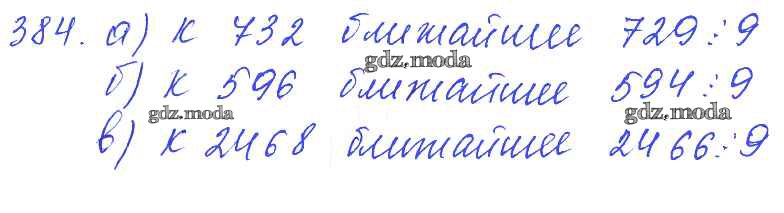 384. а) к 732 ближайшее 729⋮9
б) к 596 ближайшее 594⋮9
в) к 2468 ближайшее 2466⋮9
gdz.moda
gdz.moda
gdz.moda